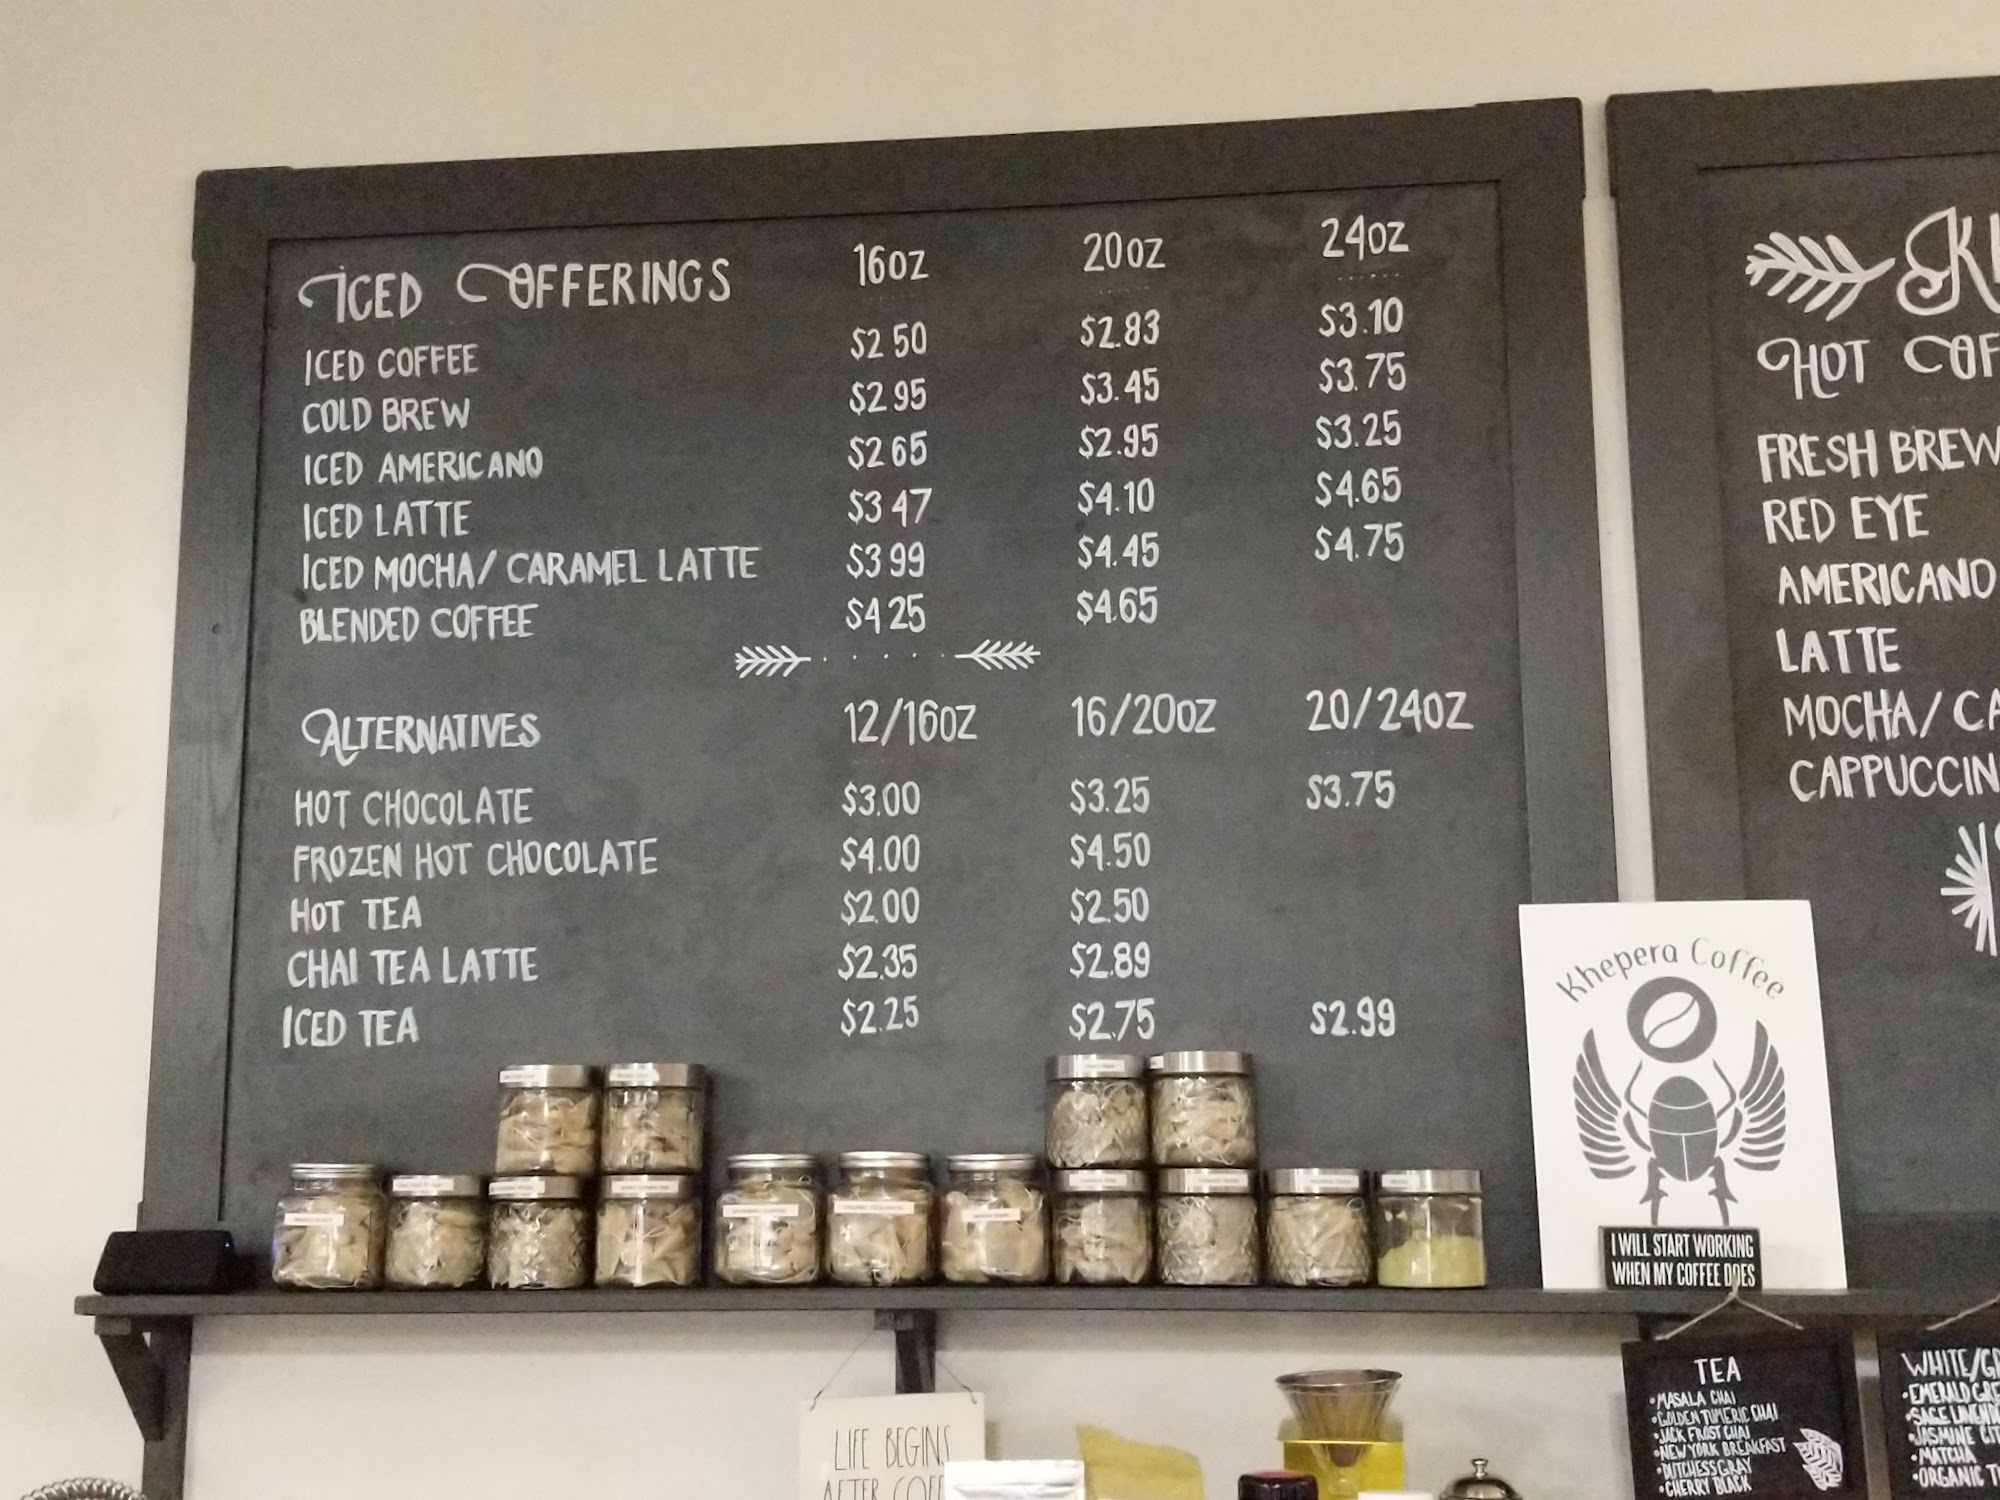 ICED OFFERINGS 16OZ 20OZ 24OZ
ICED COFFEE $2.50 $2.83 $3.10
COLD BREW $2.95 $3.45 $3.75
ICED AMERICANO $2.65 $2.95 $3.25
ICED LATTE $3.47 $4.10 $4.65
ICED MOCHA/ CARAMEL LATTE $3.99 $4.45 $4.75
BLENDED COFFEE $4.25 $4.65
ALTERNATIVES 12/16OZ 16/20OZ 20/24OZ
HOT CHOCOLATE $3.00 $3.25 $3.75
FROZEN HOT CHOCOLATE $4.00 $4.50
HOT TEA $2.00 $2.50
CHAI TEA LATTE $2.35 $2.89
ICED TEA $2.25 $2.75 $2.99
HOT
FRESH BREW
RED EYE
AMERICANO
LATTE
MOCHA/
Khepera Coffee
I WILL START WORKING
WHEN MY COFFEE DOES
LIFE BEGINS
AFTER
TEA
•MASALA CHAI
•GOLDEN TUMERIC CHAI
•JACK FROST CHAI
•NEW YORK BREAKFAST
•DUTCHESS GRAY
•CHERRY BLACK
WHITE/
•EMERALD
•SAGE
•JASMINE
•MATCHA
•ORGANIC